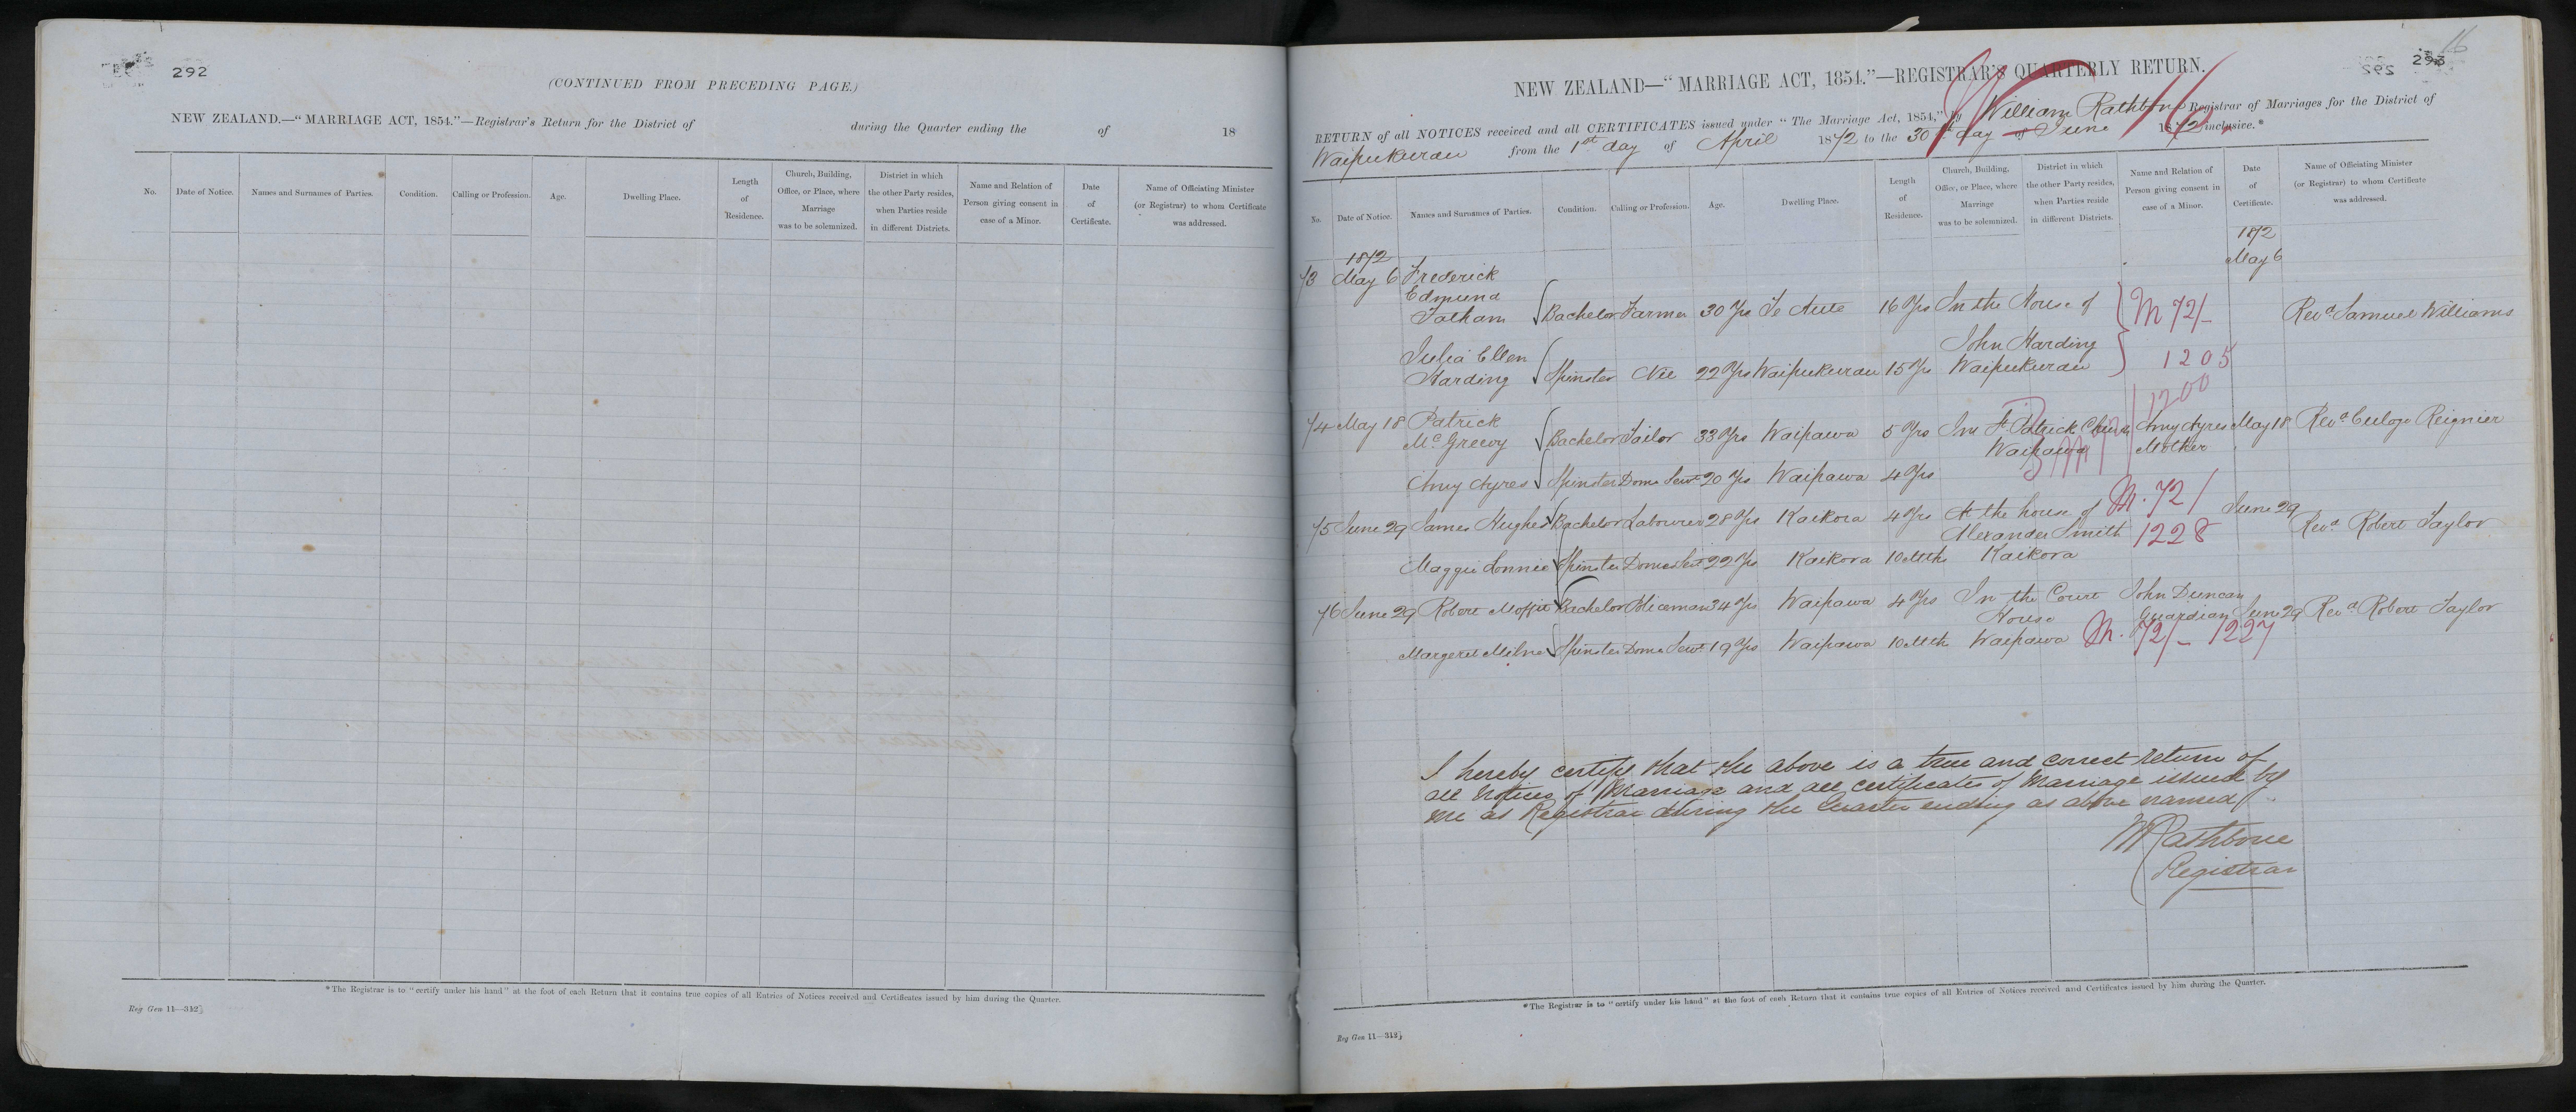 292
(CONTINUED FROM PRECEDING PAGE.)
NEW ZEALAND.—“MARRIAGE ACT, 1854.”—Registrar's Return for the District of during the Quarter ending the of 18
No. Date of Notice. Names and Surnames of Parties. Condition. Calling or Profession. Age. Dwelling Place. Length of Residence. Church, Building, Office, or Place, where Marriage was to be solemnized. District in which the other Party resides, when Parties reside in different Districts. Name and Relation of Person giving consent in case of a Minor. Date of Certificate. Name of Officiating Minister (or Registrar) to whom Certificate was addressed.
*The Registrar is to “certify under his hand” at the foot of each Return that it contains true copies of all Entries of Notices received and Certificates issued by him during the Quarter.
Reg Gen 11—342]
16
293
292
NEW ZEALAND—“MARRIAGE ACT, 1854.”—REGISTRAR'S QUARTERLY RETURN.
16
RETURN of all NOTICES received and all CERTIFICATES issued under “The Marriage Act, 1854,” by William Rathbone Registrar of Marriages for the District of
Waipukurau from the 1st day of April 1872 to the 30th day of June 1872 inclusive.*
No. Date of Notice. Names and Surnames of Parties. Condition. Calling or Profession. Age. Dwelling Place. Length of Residence. Church, Building, Office, or Place, where Marriage was to be solemnized. District in which the other Party resides, when Parties reside in different Districts. Name and Relation of Person giving consent in case of a Minor. Date of Certificate. Name of Officiating Minister (or Registrar) to whom Certificate was addressed.
1872 1872
73 May 6 Frederick May 6
Edmund
Tatham Bachelor Farmer 30 Yrs Te Aute 16 Yrs In the House of M 72/- Revd Samuel Williams
Julia Ellen John Harding
Harding Spinster Nil 22 Yrs Waipukurau 15 Yrs Waipukurau 1205
1200
74 May 18 Patrick
McGreevy Bachelor Tailor 33 Yrs Waipawa 5 Yrs In St Patrick Church Amy Ayres May 18 Revd Euloge Reignier
Waipawa Mother
Amy Ayres Spinster Dome Sevt 20 Yrs Waipawa 4 Yrs
75 June 29 James Hughes Bachelor Labourer 28 Yrs Kaikora 4 Yrs At the house of M. 72/ June 29 Revd Robert Taylor
Alexander Smith 1228
Maggie Lonnie Spinster Domes Sevt 22 Yrs Kaikora 10 Mth Kaikora
76 June 29 Robert Moffit Bachelor Policeman 34 Yrs Waipawa 4 Yrs In the Court John Duncan
House Guardian June 29 Revd Robert Taylor
Margeret Milne Spinster Dome Sevt 19 Yrs Waipawa 10 Mth Waipawa M. 72/- 1227
I hereby certify that the above is a true and correct return of
all Notices of Marriage and all certificates of Marriage issued by
me as Registrar during the Quarter ending as above named
WRathbone
Registrar
*The Registrar is to “certify under his hand” at the foot of each Return that it contains true copies of all Entries of Notices received and Certificates issued by him during the Quarter.
Reg Gen 11—342]